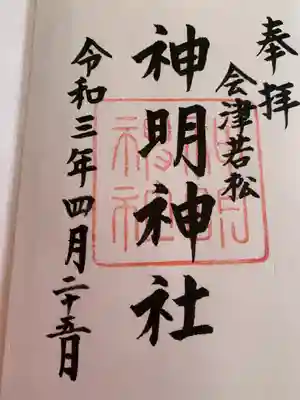 奉拝
会津若松
神明神社
令和三年四月二十五日
神明
神社